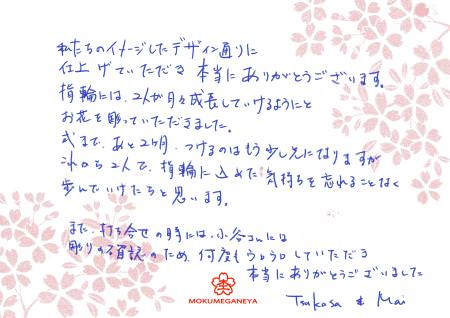 私たちのイメージしたデザイン通りに
仕上げていただき 本当にありがとうございます。
指輪には、2人が月々成長していけるようにと
お花を彫っていただきました。
式まで、あと2ヶ月。つけるのはもう少し先になりますが
これから2人で、指輪に込めた気持ちを忘れることなく
歩んでいけたらと思います。
また、打ち合せの時には、小谷さんには
彫りの確認のため、何度もウロウロしていただき
本当にありがとうございました
MOKUMEGANEYA
Tsukasa & Mai